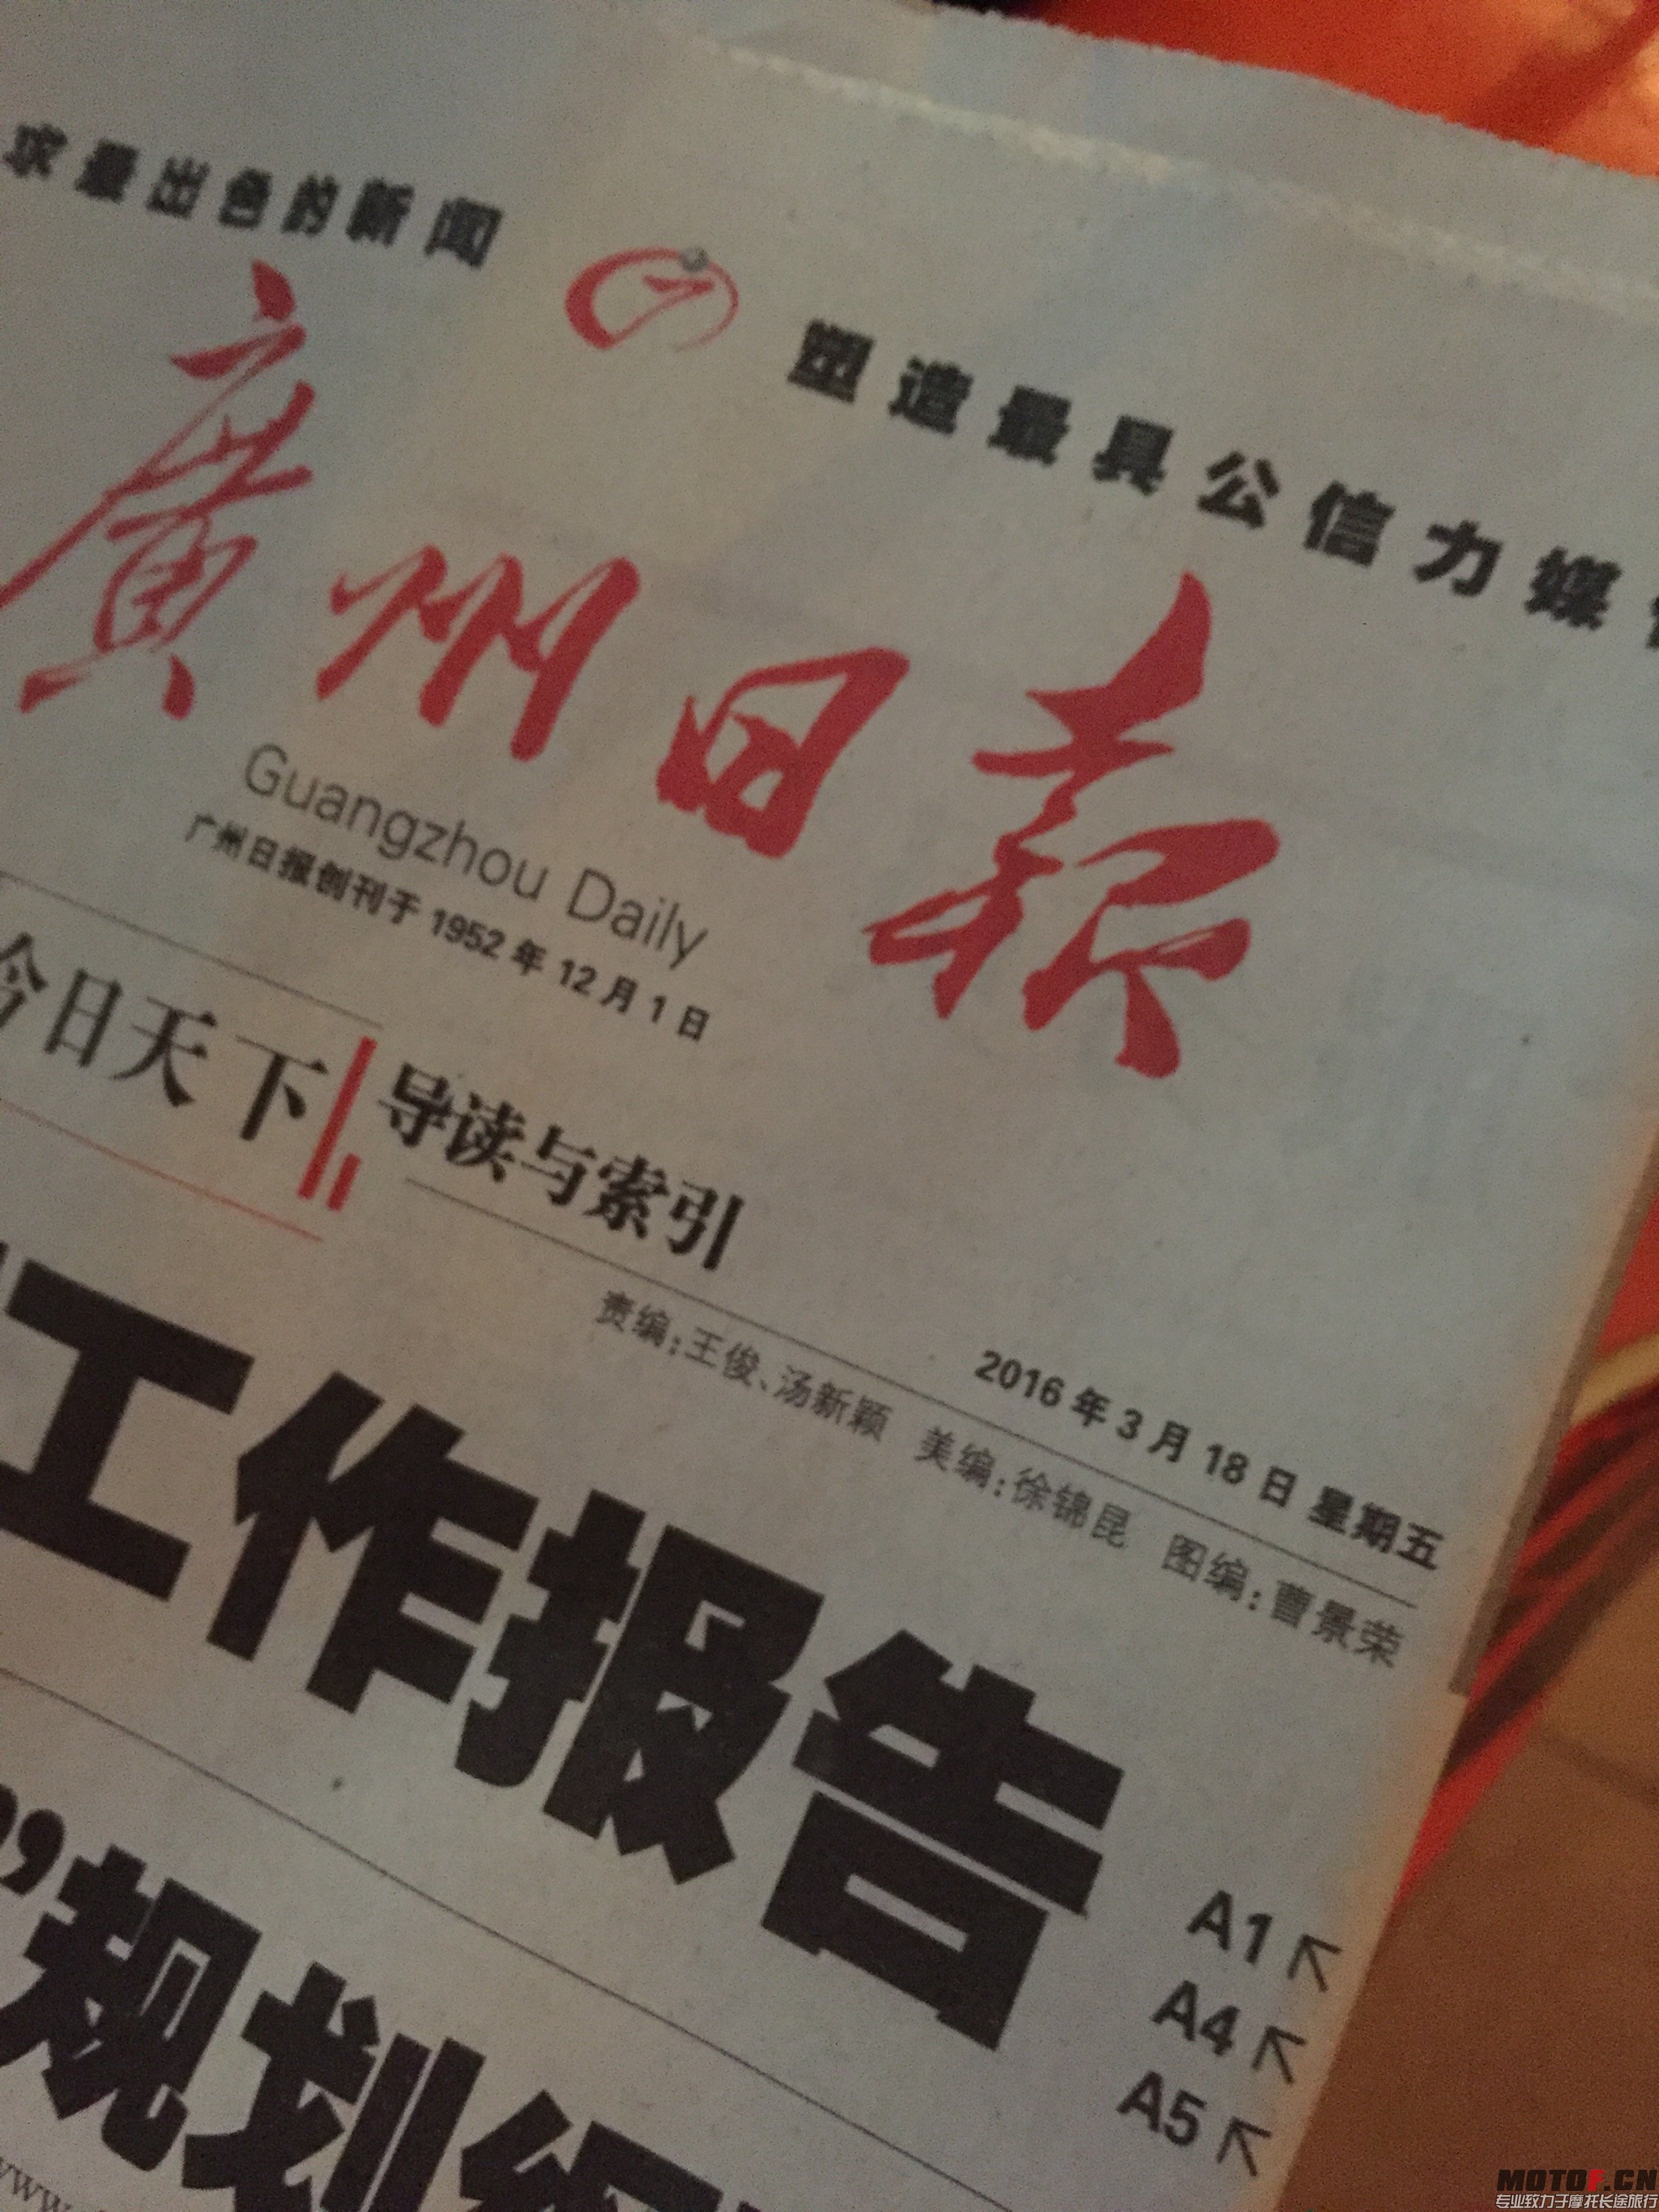 求最出色的新闻
塑造最具公信力媒
廣州日報
Guangzhou Daily
广州日报创刊于 1952 年 12 月 1 日
今日天下
导读与索引
2016 年 3 月 18 日 星期五
责编:王俊、汤新颖 美编:徐锦昆 图编:曹景荣
工作报告
A1↖
A4↖
A5↖
”规划纲
www.
MOTO8.CN
专业致力于摩托长途旅行